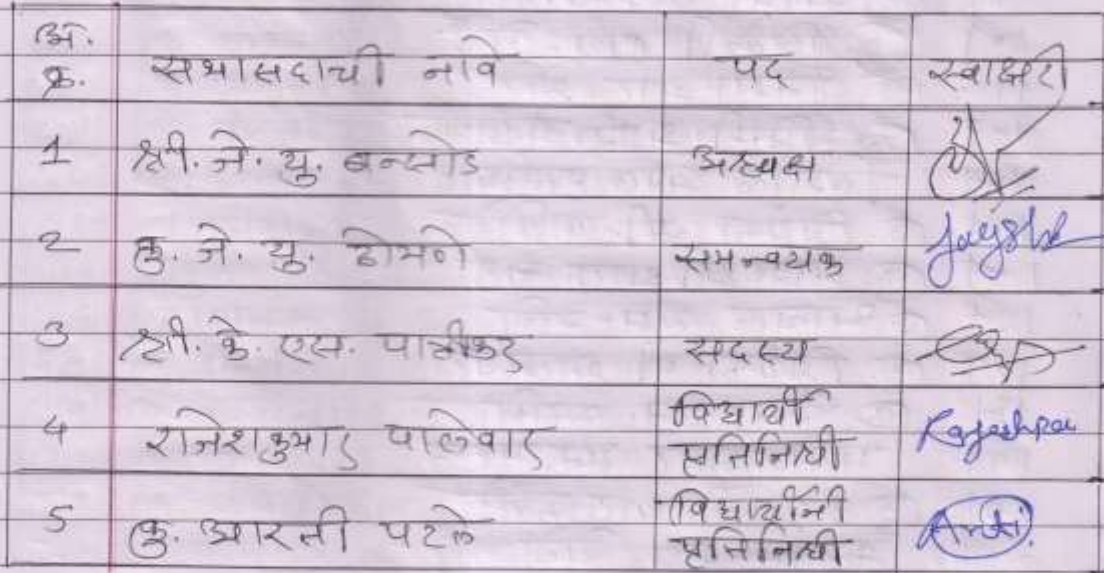 अ.
क्र. सभासदाची नावे पद स्वाक्षरी
1 श्री. जे. यु. बन्सोड अध्यक्ष
2 कु. जे. यु. ढोमणे समन्वयक
3 श्री. के. एस. सदस्य
4 राजेशकुमार पालेवार विद्यार्थी
प्रतिनिधी
5 कु. आरती पटले विद्यार्थीनी
प्रतिनिधी Arati